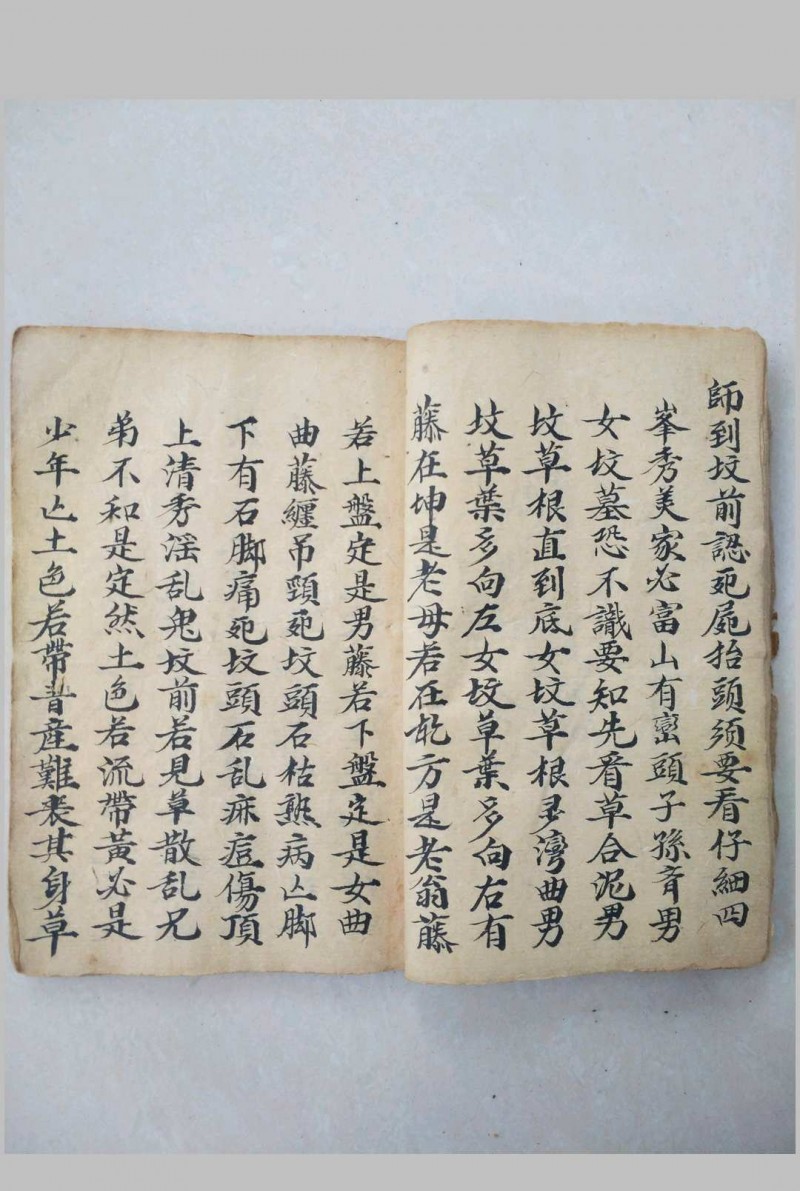 師到坟前認死屍抬頭須要看仔細四
峯秀美家必富山有巒頭子孫育男
女坟墓恐不識要知先看草合泥男
坟草根直到底女坟草根多灣曲男
坟草葉多向左女坟草葉多向右有
藤在坤是老母若在乾方是老翁藤
若上盤定是男藤若下盤定是女曲
曲藤纏吊頸死坟頭石枯熟病亡脚
下有石脚痛死坟頭石乱痳痘傷頂
上清秀淫乱鬼坟前若見草散乱兄
弟不和是定然土色若流帶黃必是
少年亡土色若帶青產難喪其身草